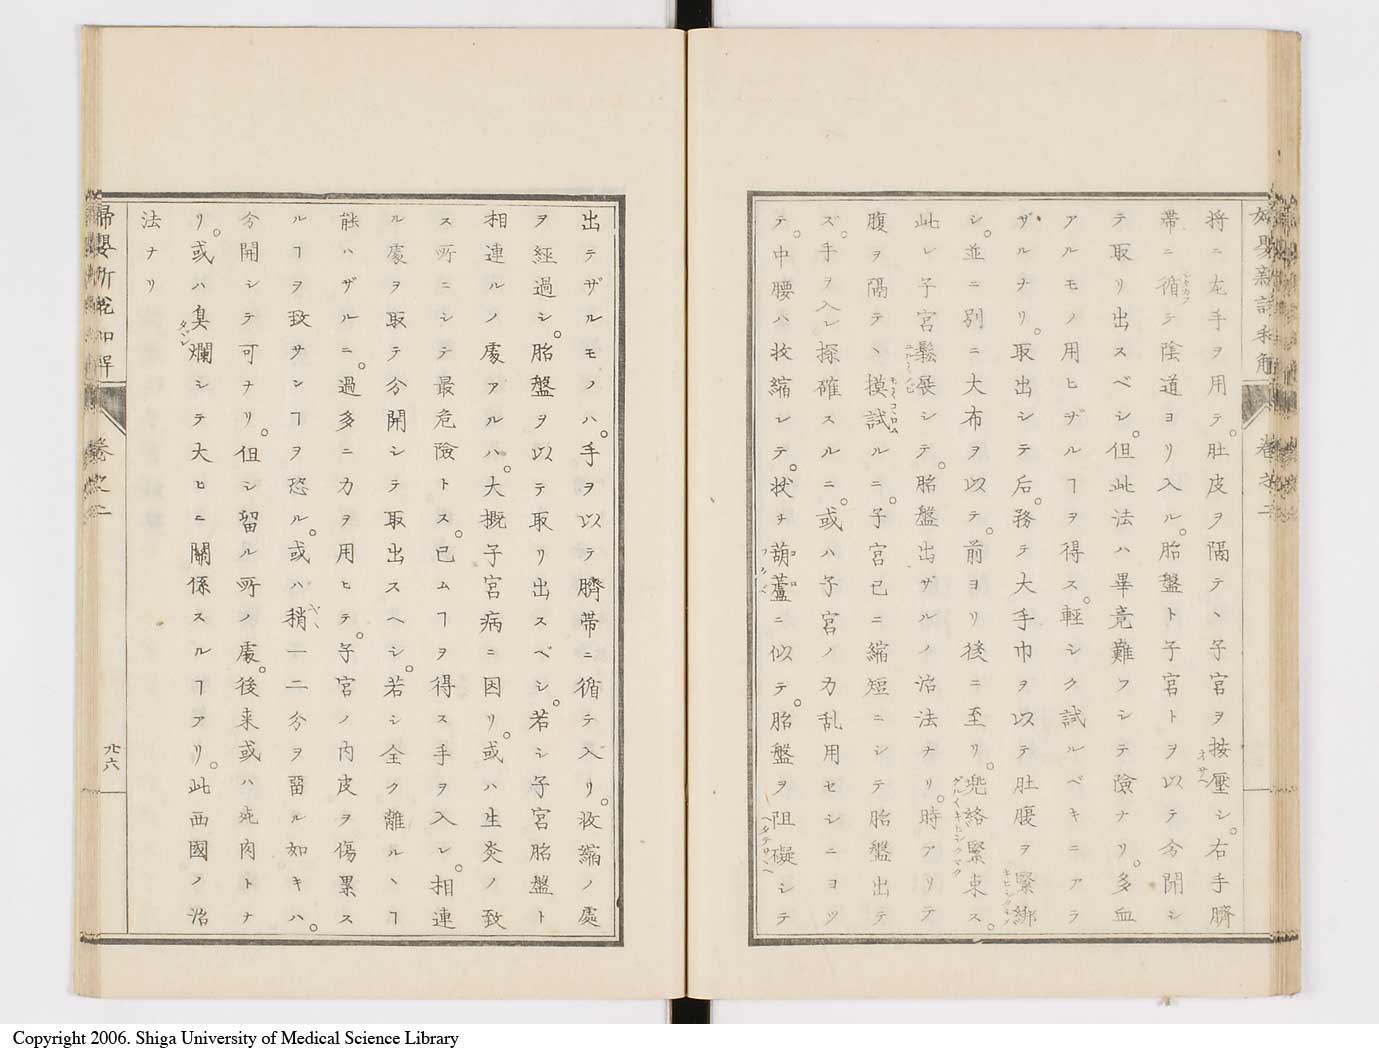 將ニ左手ヲ用テ。肚皮ヲ隔テヽ子宮ヲ按壓シ。右手臍
帶ニ循テ陰道ヨリ入ル。胎盤ト子宮トヲ以テ分開シ
テ取リ出スベシ。但此法ハ畢竟難フシテ險ナリ。多血
アルモノ用ヒザルヿヲ得ス。輕シク試ルベキニアラ
ザルナリ。取出シテ后。務テ大手巾ヲ以テ肚腹ヲ緊綁
シ。並ニ別ニ大布ヲ以テ。前ヨリ後ニ至リ。兜絡緊束ス。
此レ子宮鬆展シテ。胎盤出ザルノ治法ナリ。時アリテ
腹ヲ隔テヽ摸試ルニ。子宮已ニ縮短ニシテ胎盤出テ
ズ。手ヲ入レ探確スルニ。或ハ子宮ノ力乱用セシニヨツ
テ。中腰ハ收縮シテ。狀チ葫蘆ニ似テ。胎盤ヲ阻礙シテ
出テザルモノハ。手ヲ以テ臍帶ニ循テ入リ。收縮ノ處
ヲ經過シ。胎盤ヲ以テ取リ出スベシ。若シ子宮胎盤ト
相連ルノ處アルハ。大概子宮病ニ因リ。或ハ生炎ノ致
ス所ニシテ最危險トス。已ムヿヲ得ス手ヲ入レ。相連
ル處ヲ取テ分開シテ取出スヘシ。若シ全ク離ルヽヿ
能ハザルニ。過多ニカヲ用ヒテ。子宮ノ内皮ヲ傷累ス
ルヿヲ致サンヿヲ恐ル。或ハ稍一二分ヲ留ル如キハ。
分開シテ可ナリ。但シ留ル所ノ處。後来或ハ死肉トナ
リ。或ハ臭爛シテ大ヒニ關係スルヿアリ。此西國ノ治
法ナリ
卷之二
廿六
Copyright 2006. Shiga University of Medical Science Library